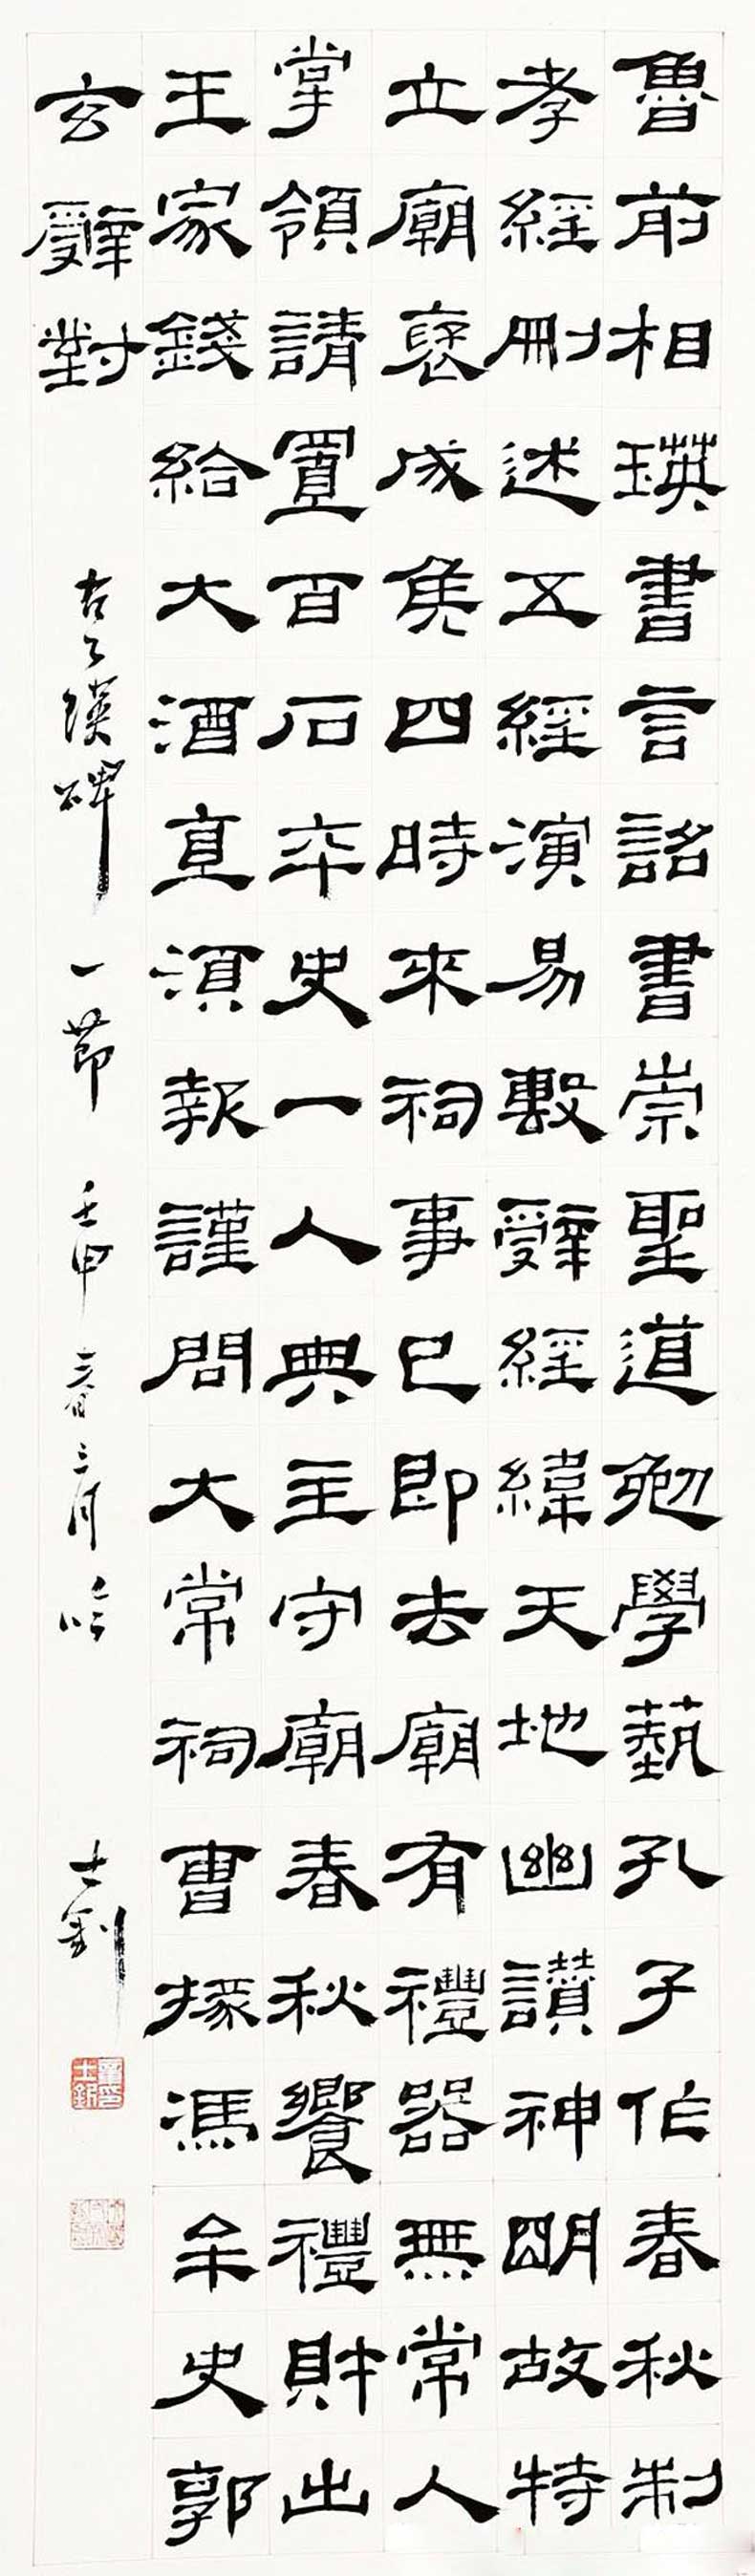 魯前相瑛書言詔書崇聖道勉學藝孔子作春秋制
孝經刪述五經演易繫辭經緯天地幽讚神明故特
立廟襃成侯四時來祠事已即去廟有禮器無常人
掌領請置百石卒史一人典主守廟春秋饗禮財出
王家錢給大酒直須報謹問大常祠曹掾馮牟史郭
玄辭對
右乙瑛碑一節 壬申春三月 士釗